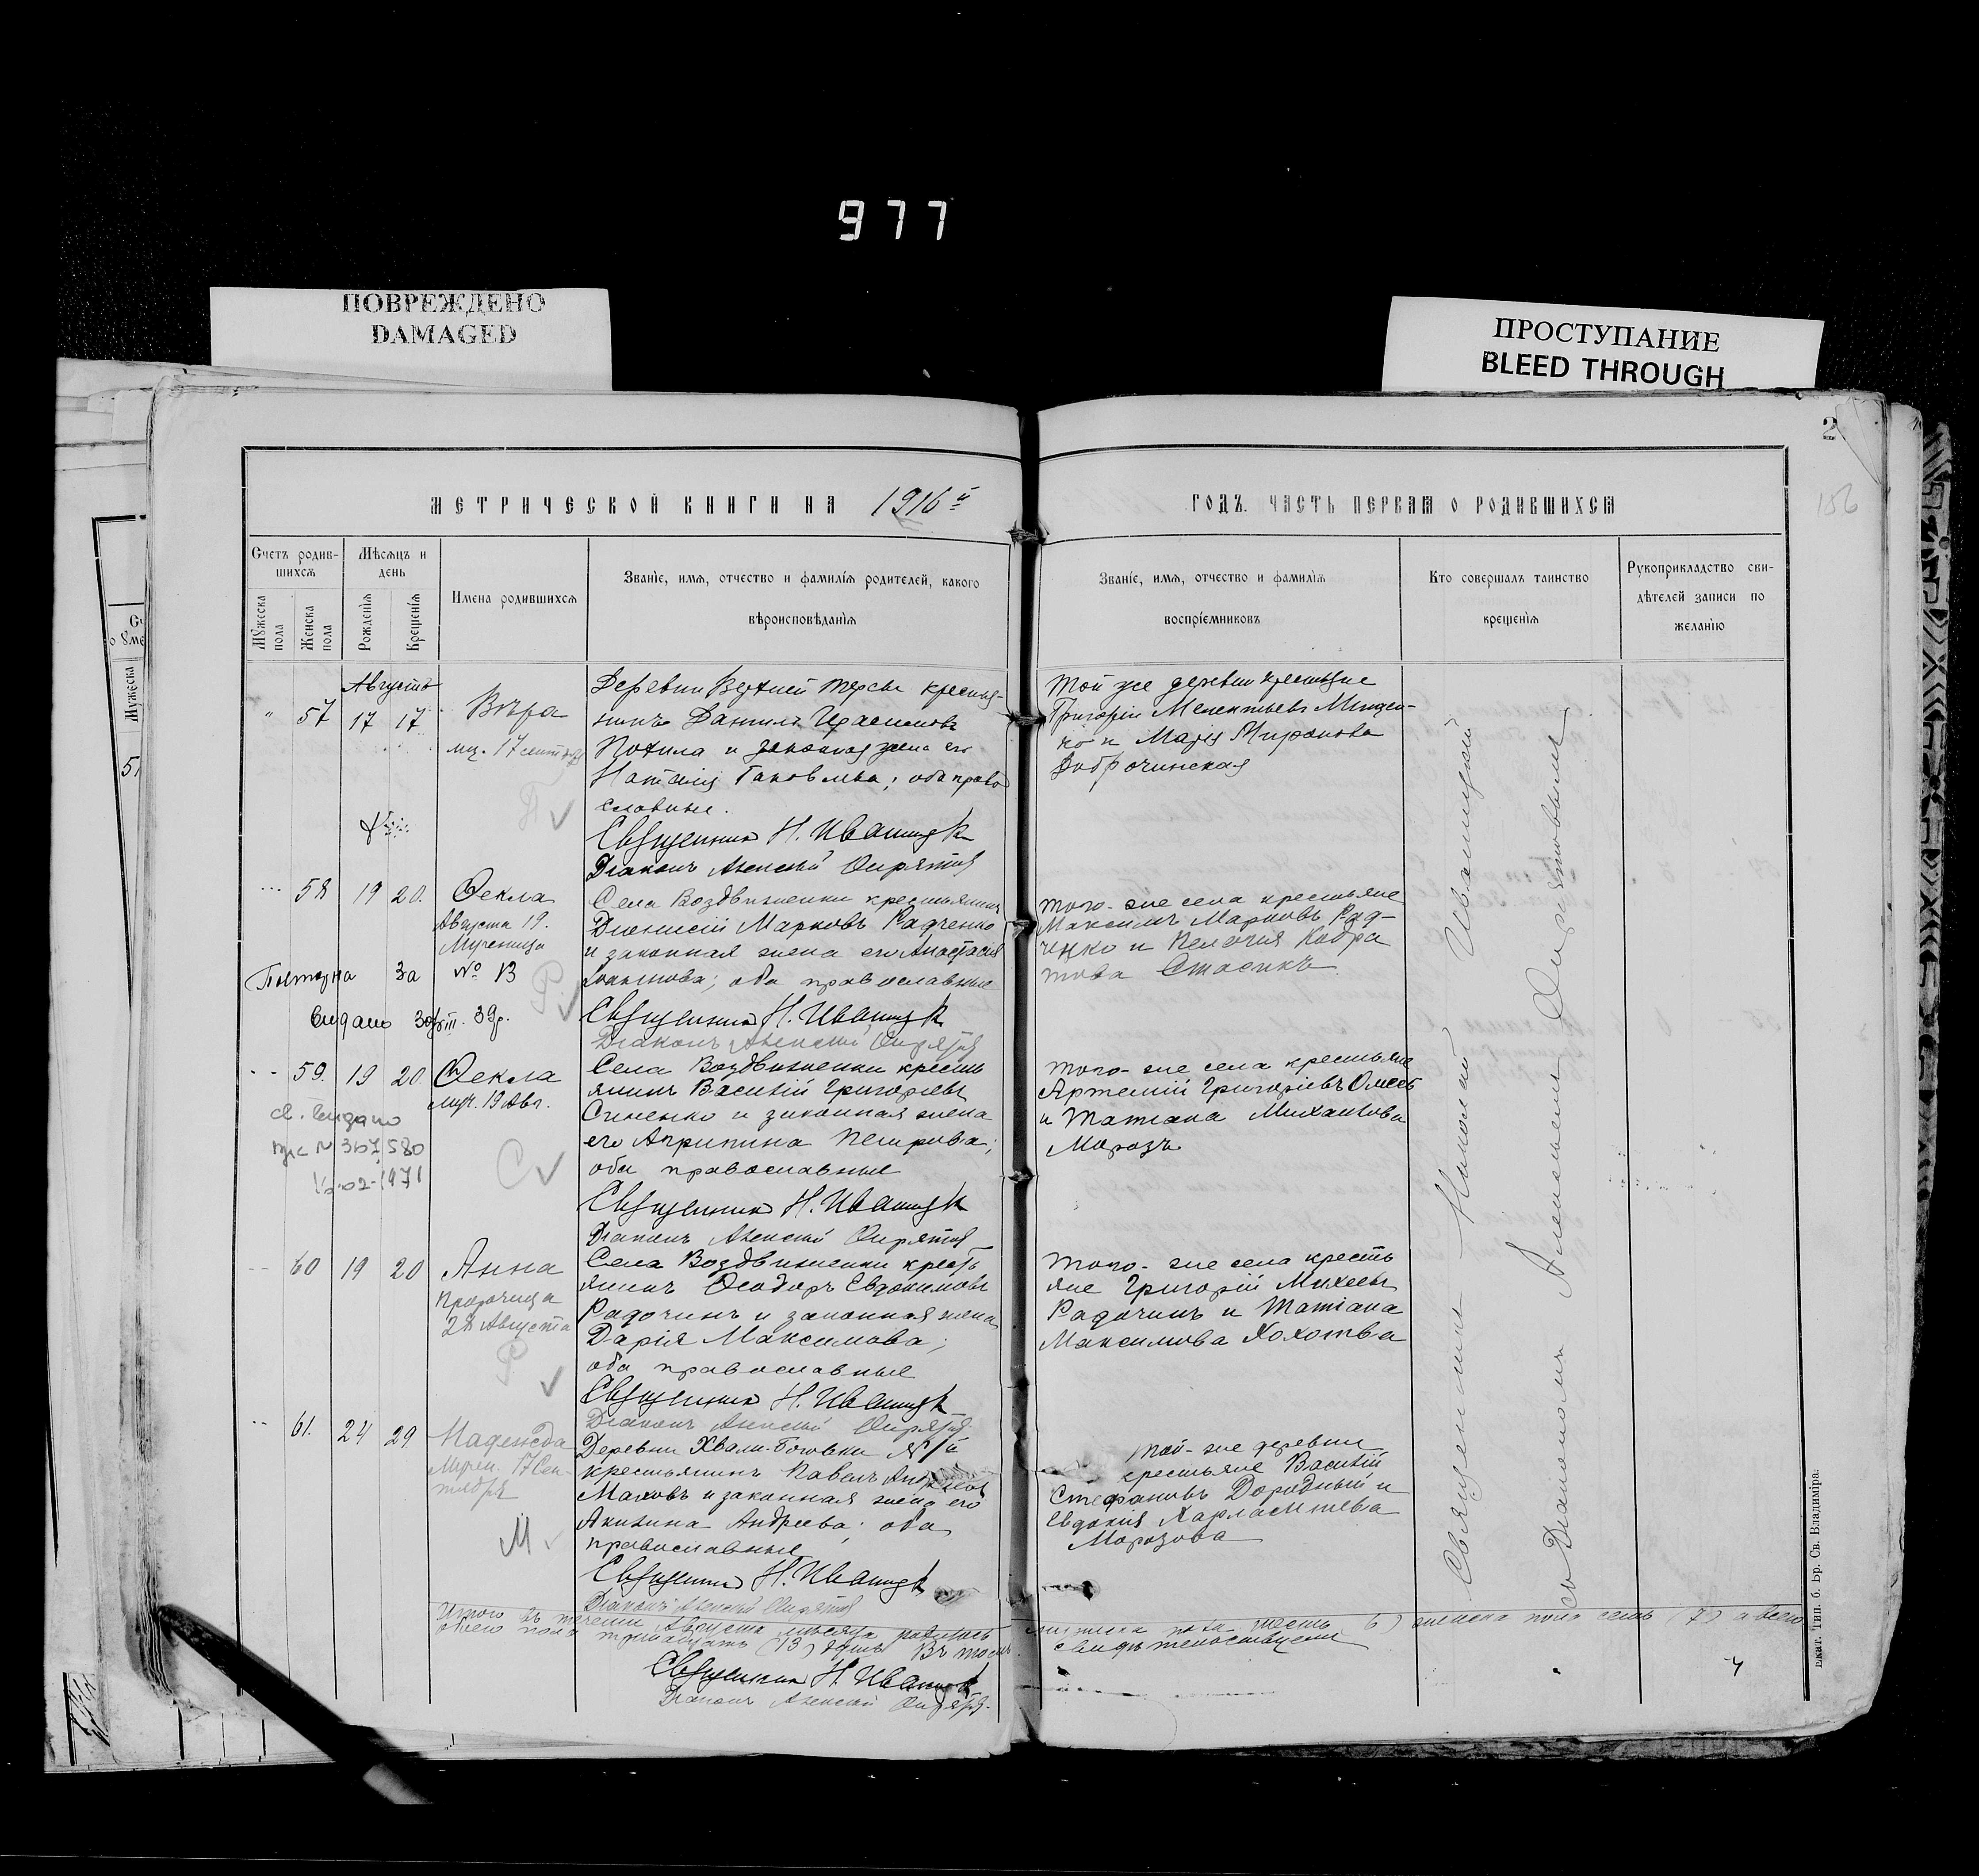 977
ПОВРЕЖДЕНО
DAMAGED
ПРОСТУПАНИЕ
BLEED THROUGH
2
156
МЕТРИЧЕСКОЙ КНИГИ НА 1916й
ГОДЪ. ЧАСТЬ ПЕРВАЯ О РОДИВШИХСЯ
Счетъ родив-
шихся
Мужеска пола
Женска пола
Мѣсяцъ и
день
Рожденія
Крещенія
Имена родившихся
Званіе, имя, отчество и фамилія родителей, какого
вѣроисповѣданія
Званіе, имя, отчество и фамилія
воспріемниковъ
Кто совершалъ таинство
крещенія
Рукоприкладство сви-
дѣтелей записи по
желанію
Августъ
57 17 17 Вѣра
мц. 17 сент
Деревни Верхней Терсы крестья-
нинъ Даниилъ
и законная жена его
Наталія Іаковлева; оба право
славные.
Священникъ Н. Иваницк
Діаконъ Алексѣй Опрятов
Той же деревни крестьяне
Григорій Мелентьевъ Мищен-
ко и Марія Миронова
Доброчинская
58 19 20. Ѳекла
Августа 19.
Мученица
Села Воздвиженки крестьянинъ
Діонисій Марковъ Радченко
и законная жена его Анастасія
оба православные
Священникъ Н. Иваницк
Діаконъ Алексѣй Опрятов
Того-же села крестьяне
Максимъ Марковъ Рад-
ченко и Пелагия Кодра
това Стасикъ
Повторна за № 13
Видано 30/VIII. 39р.
59. 19 20. Ѳекла
муч. 19 Авг.
Села Воздвиженки кресть
янинъ Василій Григорьевъ
Синенко и законная жена
его Агрипина Петрова;
оба православные
Священникъ Н. Иваницк
Діаконъ Алексѣй Опрятов
Того-же села крестьяне
Артемій Григоріевъ
и Татіана Михайлова
Морозъ
св. видано
N 367580
02-1971
С
60 19 20 Анна
Пророчица
28 Августа
Села Воздвиженки кресть
янинъ Ѳеодоръ Евдокимовъ
Радочинъ и законная жена
Дарія Максимова;
оба православные
Священникъ Н. Иваницк
Діаконъ Алексѣй Опрятов
Того-же села кресть
яне Григорій Михеевъ
Радочинъ и Татіана
Максимова Хохотва
Р
61. 24 29 Надежда
Мучен. 17 Сен-
тября
М
Деревни Хвали-Боговки
крестьянинъ Павелъ
Маховъ и законная жена его
Акилина Андреева; оба
православные
Священникъ Н. Иваницк
Діаконъ Алексѣй Опрятов
Той-же деревни
крестьяне Василій
Стефановъ Дородный и
Евдокия Харлампіева
Морозова
Священникъ Николай Иваницкій
съ Діакономъ Алексѣемъ Опрятовымъ
Итого въ теченіи Августа мѣсяца родилось мужеска пола шесть 6) женска пола семь (7) а всего
обоего пола тринадцать (13) душъ Въ томъ свидѣтельствуемъ
Священникъ Н. Иваницк
Діаконъ Алексѣй Опрятов.
Екат. Тип. б. Бр. Св. Владиміра.